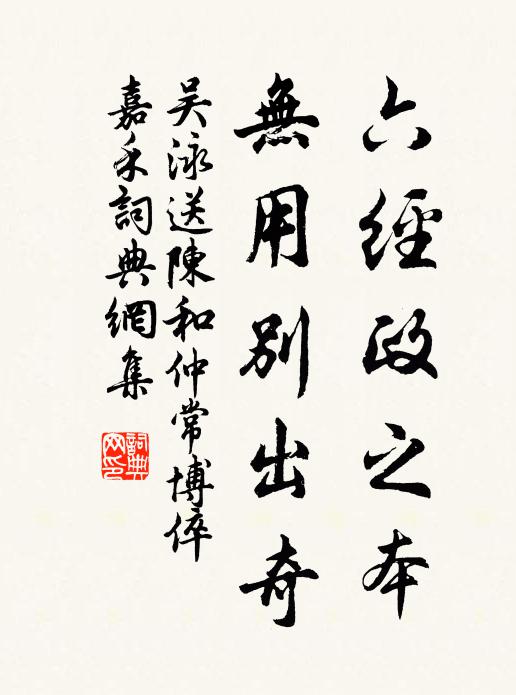 六經政之本
無用別出奇
吴泳送陳和仲常博倅
嘉禾詞典網集
詞典網印